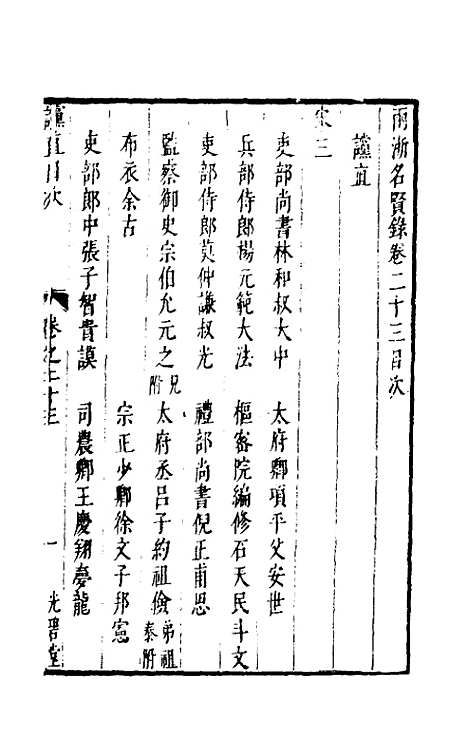 兩浙名賢錄卷二十三目次
讜直
宋三
吏部尚書林和叔大中 太府卿項平父安世
兵部侍郎楊元範大法 樞密院編修石天民斗文
吏部侍郎莫仲謙叔光 禮部尚書倪正甫思
監察御史宗伯允元之兄附 太府丞呂子約祖儉弟祖泰附
布衣余古 宗正少卿徐文子邦憲
吏部郎中張子智貴謨 司農卿王慶翔夢龍
讜直目次 卷之二十三 一 光碧堂